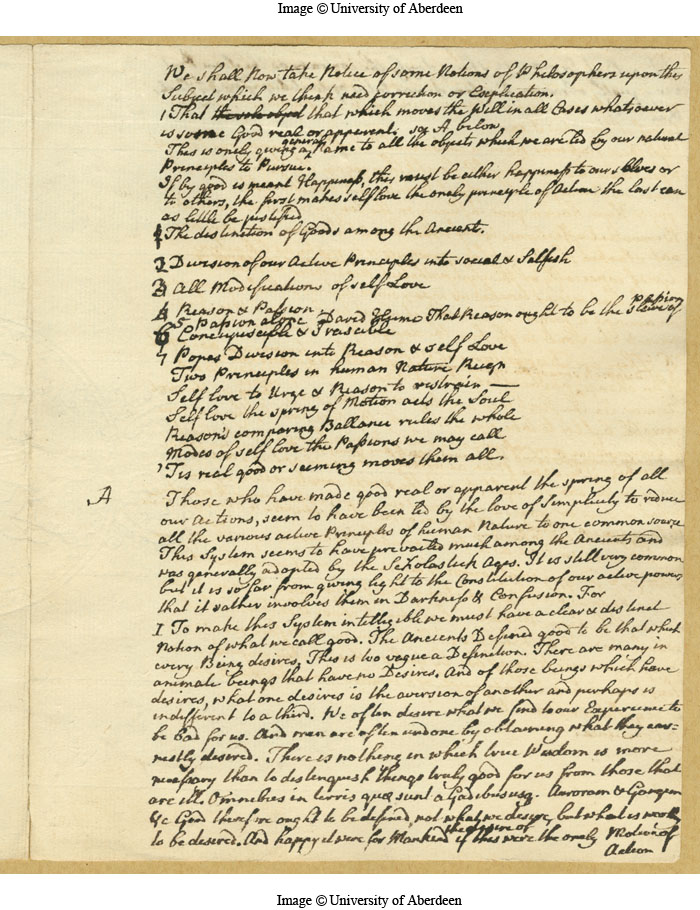 Image © University of Aberdeen
We shall now take Notice of some Notions of Philosophers upon this
Subject which we think need correction or Explication.
1 That that which moves the Will in all Cases whatsoever
is some Good real or apparent. See A below
This is onely giving a general Name to all the objects which we are led by our natural
Principles to Pursue.
If by good is meant Happiness, this must be either happiness to our selves or
to others, the first makes self love the onely principle of Action the last can
as little be justified
The destinction of Goods among the Ancients.
2 Division of our Active Principles into social & Selfish
3 All Modifications of self Love
4 Reason & Passion
5 Passion alone David Hume That Reason ought to be the Slave of Passion
6 Concupiscible & Irascible
7 Popes Division into Reason & self Love
Two Principles in human Nature Reign
Self love to Urge & Reason to restrain —
Self love the spring of Motion acts the Soul
Reason's comparing Ballance rules the whole
Modes of self love the Passions we may call
'Tis real good or seeming moves them all.
A
Those who have made good real or apparent the spring of all
our Actions, seem to have been led by the love of Simplicity to reduce
all the various active Principles of human Nature to one common source
This System seems to have prevailed much among the Ancients and
was generally adopted by the Scholastick Ages. It is still very common
but it is so far from giving light to the Constitution of our active powers
that it rather involves them in Darkness & Confusion. For
I To make this System intelligible we must have a clear & destinct
Notion of what we call good. The Ancients Defined good to be that which
every Being desires. This is too vague a Definition. There are many in
animate beings that have no Desires. And of those beings which have
desires, what one desires is the aversion of another and perhaps is
indifferent to a third. We often desire what we find to our Experience to
be bad for us. And men are often undone by obtaining what they ear=
nestly desired. There is nothing in which true Wisdom is more
necessary than to destinguish things truly good for us from those that
are ill. Omnibus in terris quæ sunt a Gadibus usq. Auroram & Gangem
&c Good therefore ought to be defined not what we desire, but what is worthy
to be desired. And happy it were for Mankind if the desire of this were the onely Motive of
Action
Image © University of Aberdeen